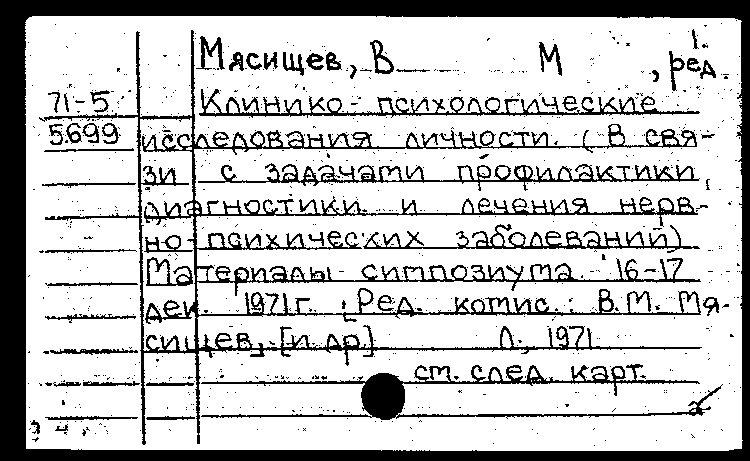 1.
Мясищев, В М , ред.
71-5 Клинико-психологические
5699 исследования личности. (В свя-
зи с задачами профилактики,
диагностики и лечения нерв-
но-психических заболеваний)
Материалы симпозиума 16-17
дек. 1971г. [Ред. комис.: В.М. Мя-
сищев] [и др] Л., 1971.
ст. след. карт.